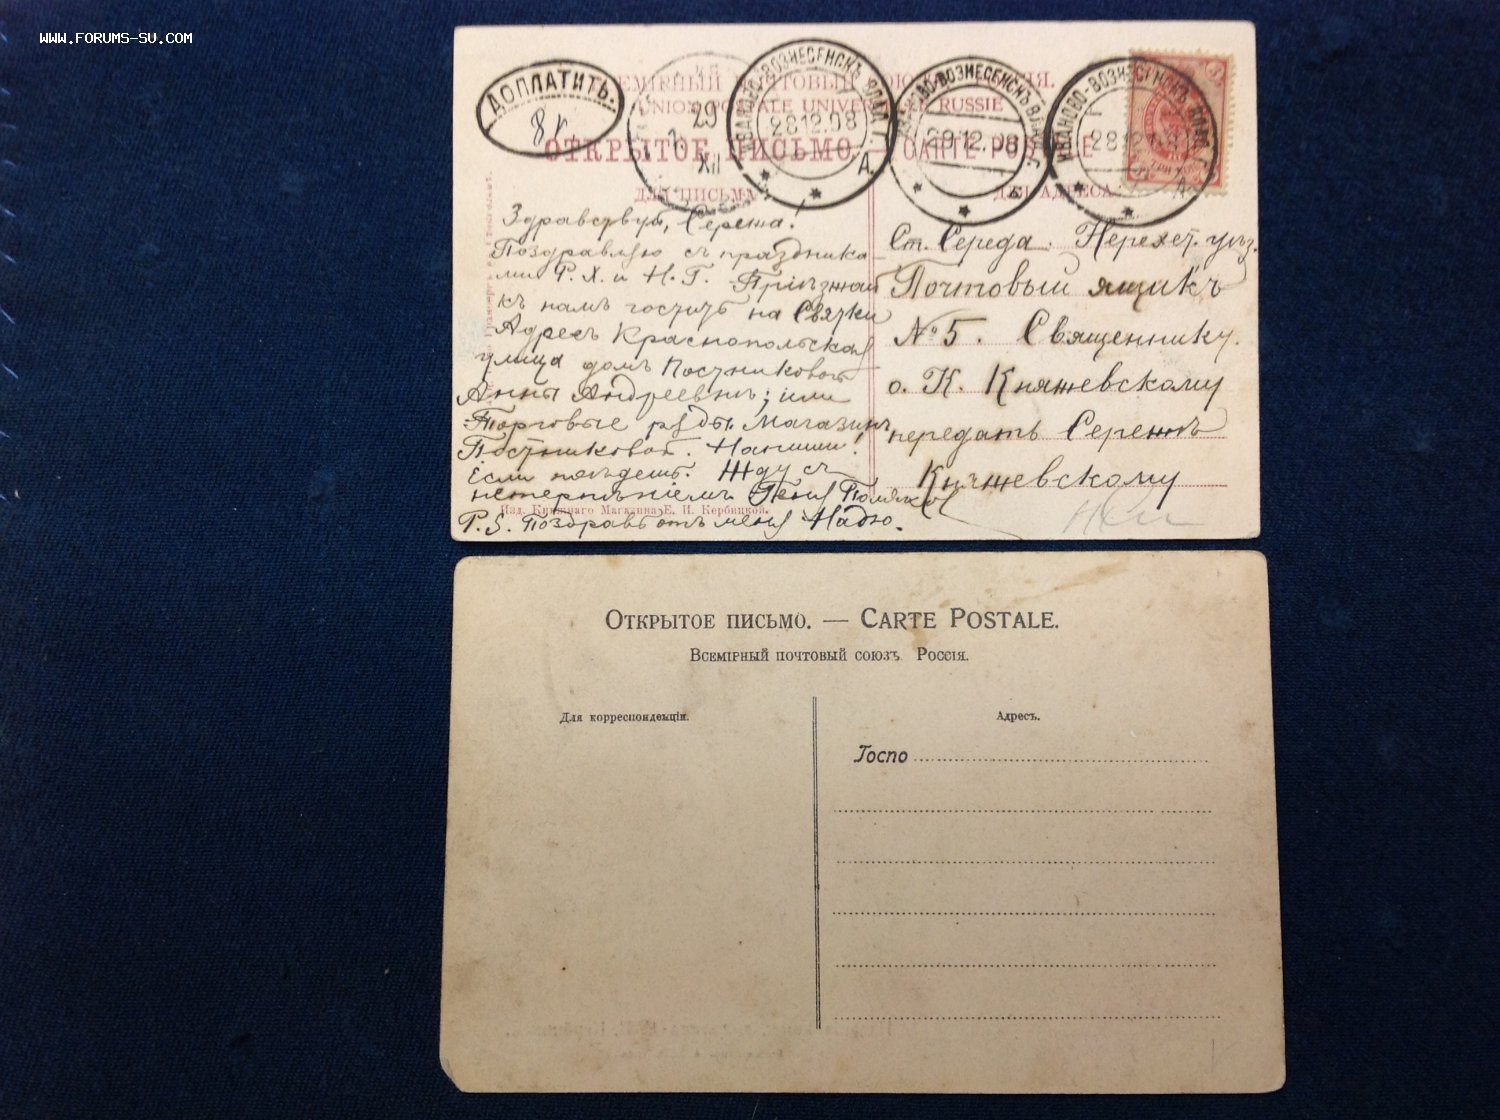 WWW.FORUMS-SU.COM
ДОПЛАТИТЬ.
8 к.
29
XII
ИВАНОВО-ВОЗНЕСЕНСКЪ ВЛАД. Г.
28 12. 08
А.
ИВАНОВО-ВОЗНЕСЕНСКЪ ВЛАД. Г.
29 12. 08
ИВАНОВО-ВОЗНЕСЕНСКЪ ВЛАД. Г.
28 12. 08
А.
ВСЕМІРНЫЙ ПОЧТОВЫЙ СОЮЗЪ. РОССІЯ.
UNION POSTALE UNIVERSELLE RUSSIE
ОТКРЫТОЕ ПИСЬМО. CARTE POSTALE
ДЛЯ ПИСЬМА
ДЛЯ АДРЕСА
Здравствуй, Сережа!
Поздравляю съ праздника
ми Р. Х. и Н. Г. Пріѣзжай
къ намъ гостить на Святки
Адресъ Краснопольская
улица домъ Постниковой
Анны Андреевны; или
Торговые ряды. Магазинъ
Постниковой. Напиши!
Если поѣдешь. Жду съ
нетерпѣніемъ Геня
P. S. Поздравь отъ меня Надю.
Изд. Книжнаго Магазина Е. И. Кербицкой.
Ст. Середа. Нерехт. уѣз.
Почтовый ящикъ
№ 5. Священнику.
о. К. Княжевскому
передать Сережѣ
Княжевскому
Открытое письмо. — Carte Postale.
Всемірный почтовый союзъ. Россія.
Для корреспонденціи.
Адресъ.
Госпо